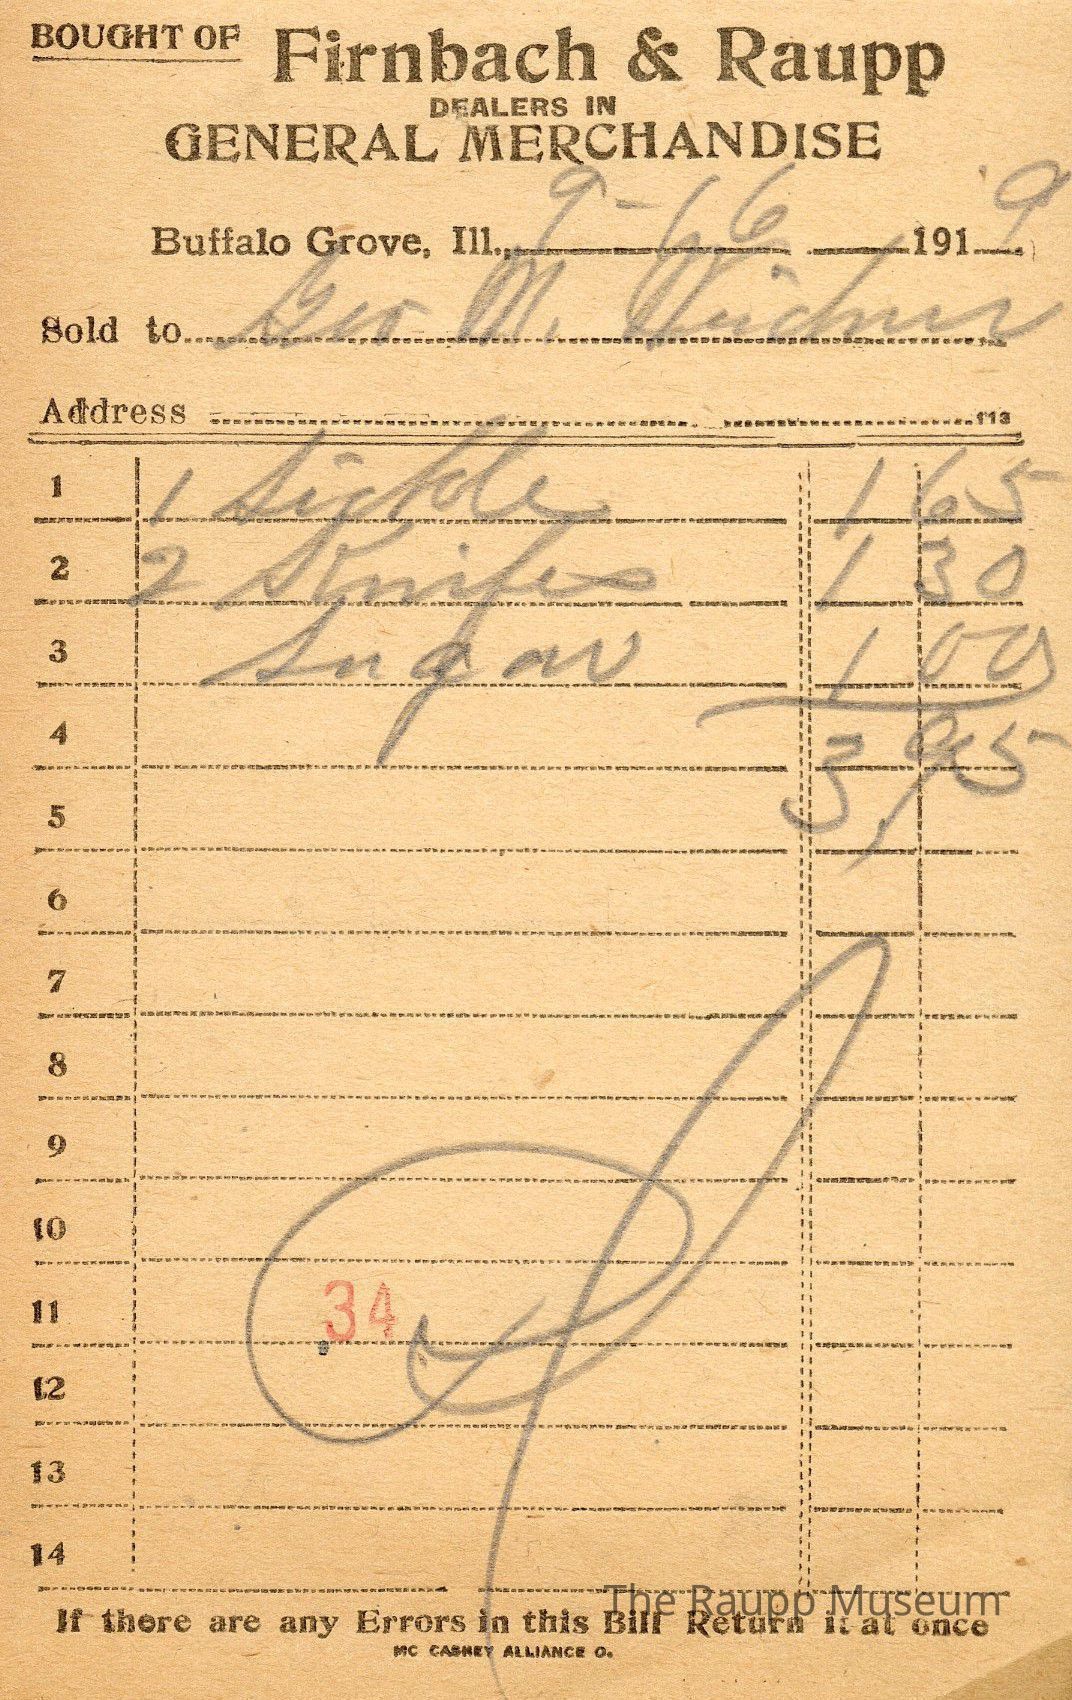 BOUGHT OF Firnbach & Raupp
DEALERS IN
GENERAL MERCHANDISE
Buffalo Grove, Ill., 9-16 1919
Sold to Geo M. Weidner
Address 113
1 1 Sickle 1 65
2 2 Knifes 1 30
3 Sugar 1 00
4 3,95
5
6
7
8
9
10
11 34
12
13
14
The Raupp Museum
If there are any Errors in this Bill Return it at once
MC CASKEY ALLIANCE O.